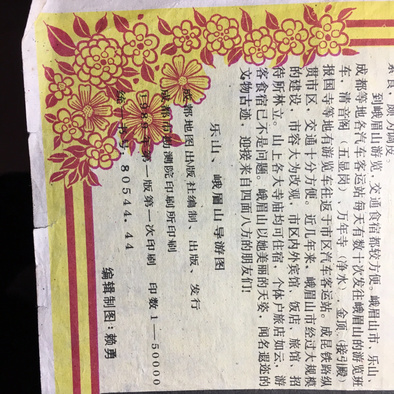 到峨眉山游览，交通食宿都较方便。峨眉山市、乐山、
成都等地各汽车客运站每天有数十次发往峨眉山的游览班
车，清音阁（五显岗）、万年寺（净水）、金顶（接引殿）
报国寺等地有游览车往返于市区汽车客运站。成昆铁路纵
贯市区，交通十分方便。近几年来，峨眉山市经过大规模
的建设，市容大为改观，市区内外宾馆、饭店、旅馆、招
待所林立。山上各大寺庙均可住宿，个体户旅店如云，游
客食宿已不是问题。峨眉山以她美丽的天姿，闻名遐迩的
文物古迹，迎接来自四面八方的朋友们！
乐山、峨眉山导游图
成都地图出版社编制、出版、发行
成都市勘测院印刷所印刷
第一版第一次印刷 印数1—50000
统一书号：80544·44
编辑制图：赖勇